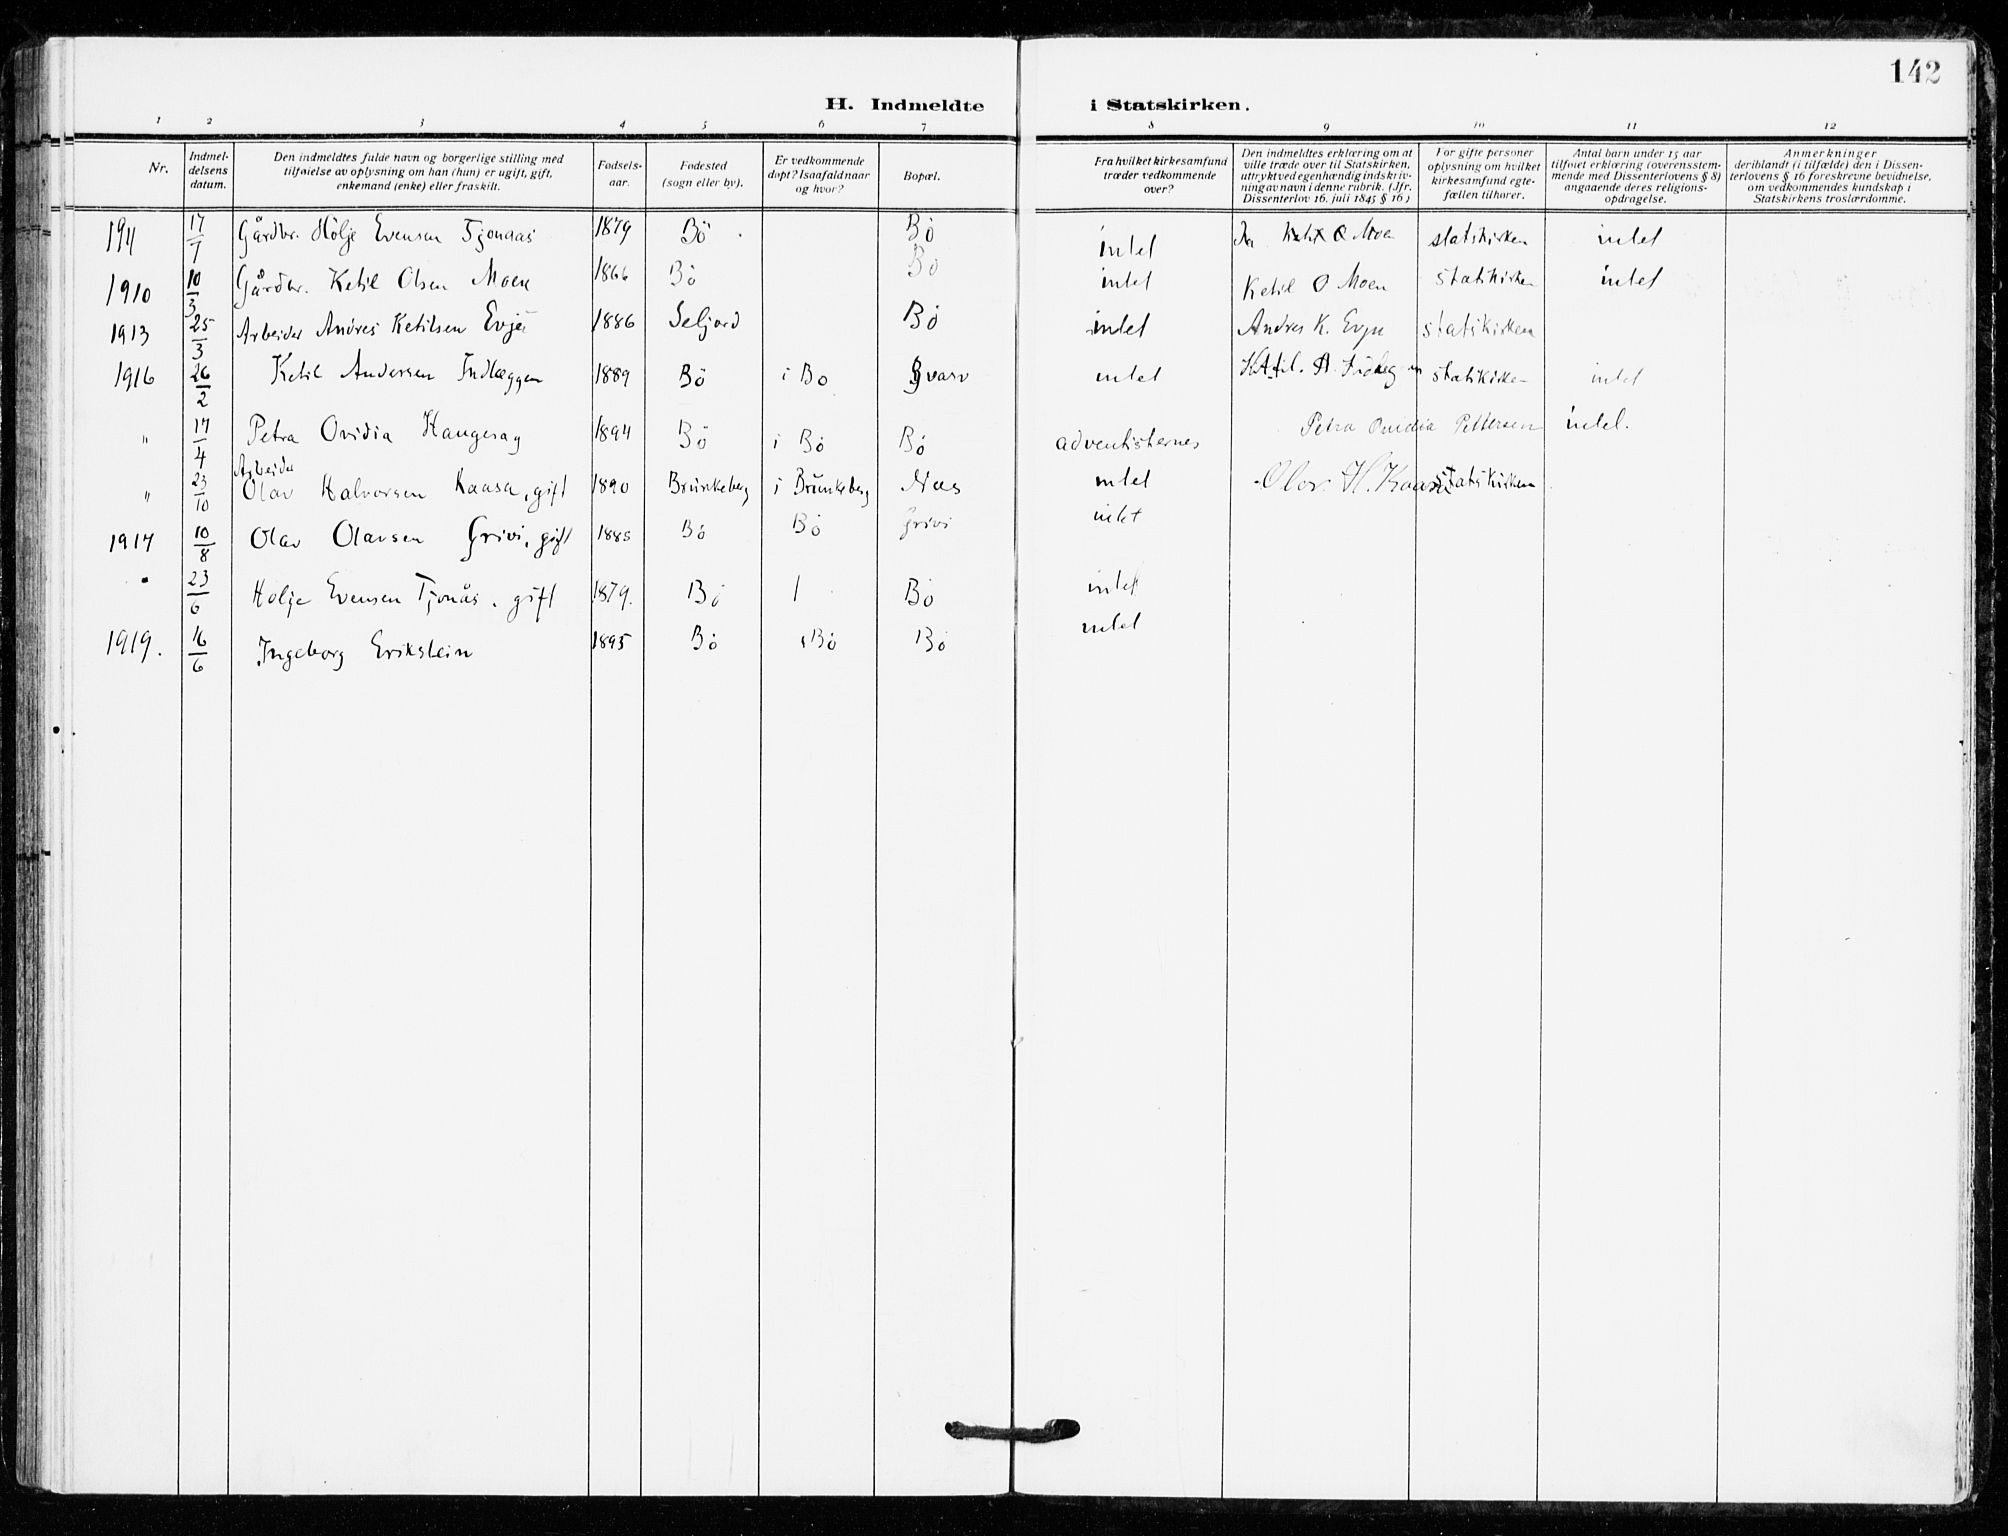 142
H. Indmeldte i Statskirken.
1 2 3 4 5 6 7 8 9 10 11 12
Nr.
Indmel-
delsens
datum.
Den indmeldtes fulde navn og borgerlige stilling med
tilføielse av oplysning om han (hun) er ugift, gift,
enkemand (enke) eller fraskilt.
Fødsels-
aar.
Fødested
(sogn eller by).
Er vedkommende
døpt? Isaafald naar
og hvor?
Bopæl.
Fra hvilket kirkesamfund
træder vedkommende
over?
Den indmeldtes erklæring om at
ville træde over til Statskirken,
uttrykt ved egenhændig indskriv-
ning av navn i denne rubrik. (Jfr.
Dissenterlov 16. juli 1845 § 16)
For gifte personer
oplysning om hvilket
kirkesamfund egte-
fællen tilhører.
Antal barn under 15 aar
tilføiet erklæring (overensstem-
mende med Dissenterlovens § 8)
angaaende deres religions-
opdragelse.
Anmerkninger
deriblandt (i tilfælde) den i Dissen-
terlovens § 16 foreskrevne bevidnelse,
om vedkommendes kundskap i
Statskirkens troslærdomme.
1911 17/7 Gårdbr. Hölje Evensen Tjonaas 1879 Bö Bö intet O Moen statskirken intet
1910 10/3 Gårdbr. Ketil Olsen Moen 1866 Bö Bö intet Ketil O Moen statskirken intet
1913 25/3 Arbeider Andres Ketilsen Evje 1886 Seljord Bö intet Andres K. Evju statskirken
1916 26/2 Ketil Andersen Indlæggen 1889 Bö i Bö Gvarv intet Ketil A. statskirken intet
" 17/4 Petra Ovidia Haugerag 1894 Bö i Bö Bö adventisternes Petra Ovidia Pettersen intet.
Arbeider
" 23/10 Olav Halvorsen Kaasa, gift 1890 Brunkeberg i Brunkeberg Næs intet Olav. H. Kaasa statskirken
1917 10/8 Olav Olavsen Grivi, gift 1885 Bö Bö Grivi intet
" 23/6 Holje Evensen Tjonås, gift 1879. Bö Bö intet
1919. 16/6 Ingeborg Erikstein 1895 Bö i Bö Bö intet